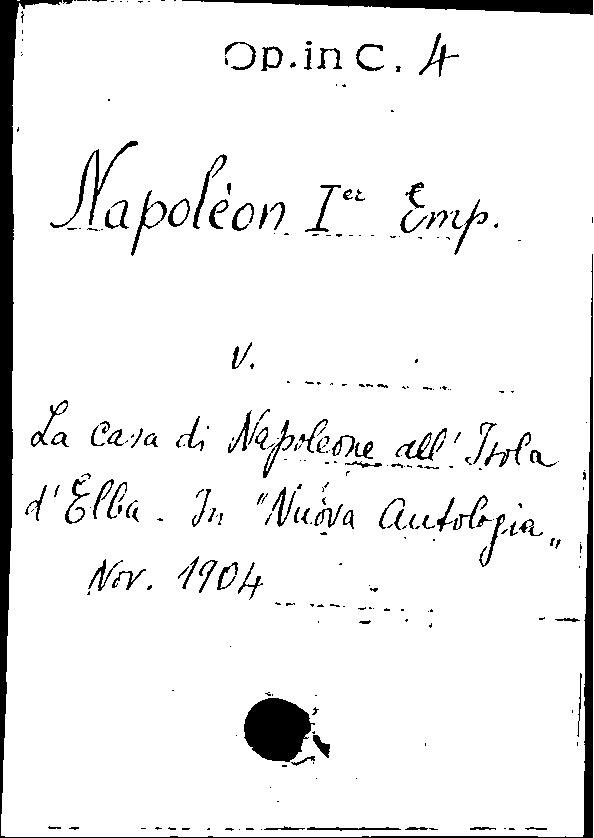 Op. in C. 4
Napoléon Ier Emp.
v.
La casa di Napoleone all' Isola
d'Elba. In "Nuova Antologia„
Nov. 1904